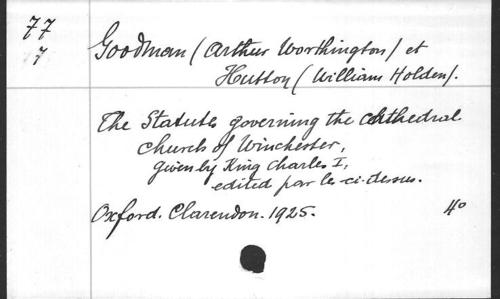 77
7
Goodman (Arthur Worthington) et
Hutton (William Holden).
The Statutes governing the Cathedral
Church of Winchester,
given by King Charles I,
edited par les ci-dessus.
Oxford. Clarendon. 1925. 4o